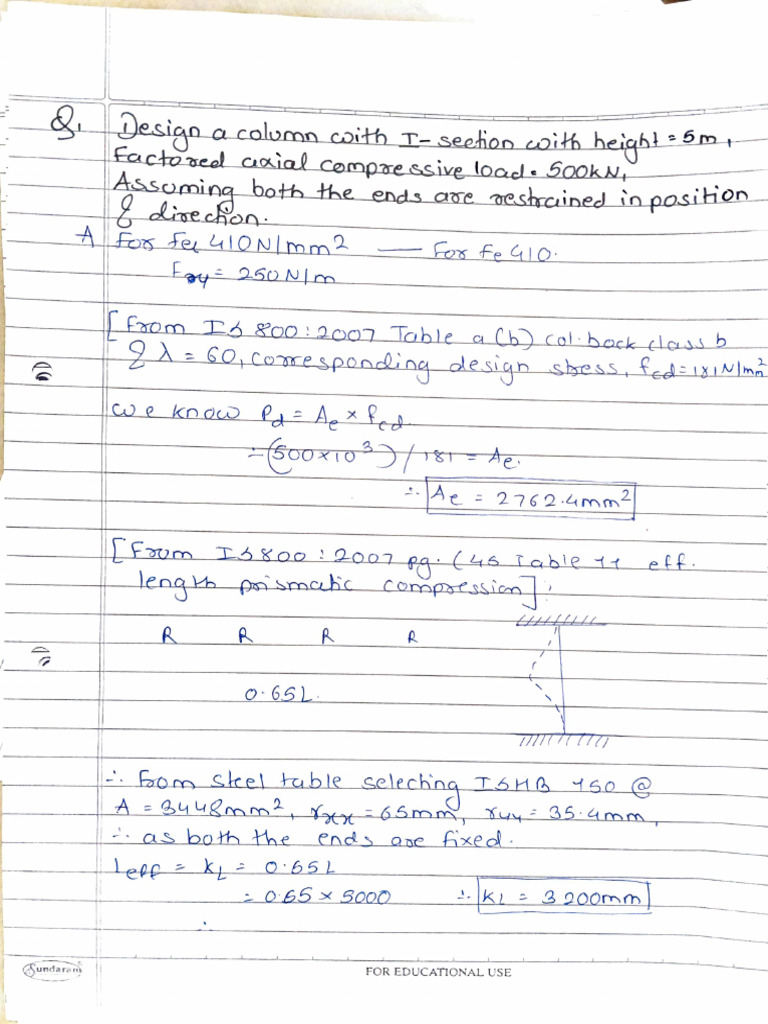 Q1. Design a column with I-section with height = 5m,
Factored axial compressive load = 500kN,
Assuming both the ends are restrained in position
& direction.
A For feu 410N/mm2 — For fe 410.
Fxy = 250N/m
[From IS 800:2007 Table a (b) col. back class b
& λ = 60, corresponding design stress, fcd = 181N/mm2
we know Pd = Ae × fcd
∴ (500×10³) / 181 = Ae.
∴ Ae = 2762.4mm2
[From IS 800 : 2007 pg. (45 Table 11 eff.
length prismatic compression]:
R R R R
0.65L.
∴ from steel table selecting ISHB 150 @
A = 3448mm2, rxx = 65mm, ryy = 35.4mm,
∴ as both the ends are fixed.
leff = KL = 0.65L
= 0.65 × 5000 ∴ KL = 3200mm
∴
Sundaram
FOR EDUCATIONAL USE